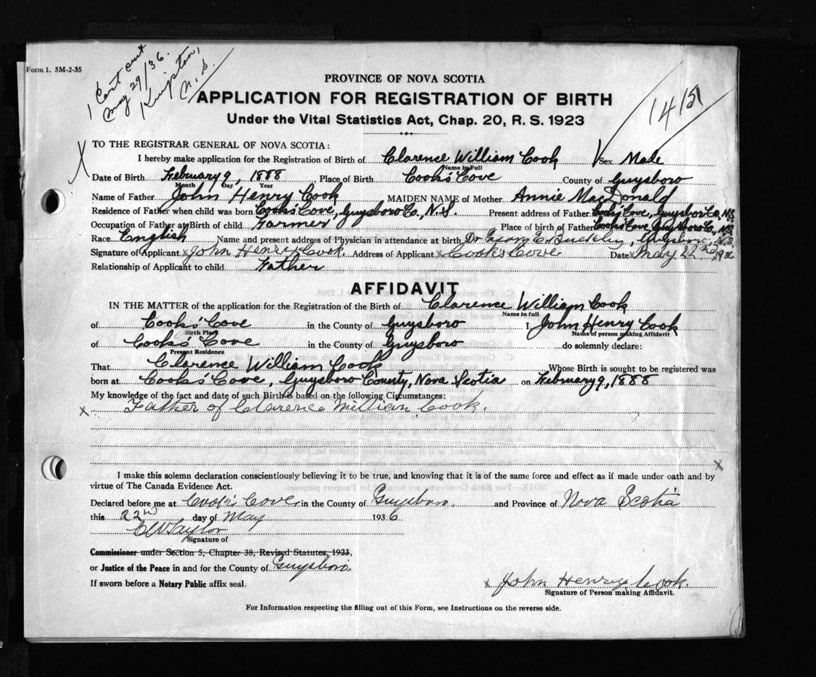 Form 1. 5M-2-35
1 Cert out
May 29/36.
Kingston,
N.S.
PROVINCE OF NOVA SCOTIA
APPLICATION FOR REGISTRATION OF BIRTH
Under the Vital Statistics Act, Chap. 20, R. S. 1923
TO THE REGISTRAR GENERAL OF NOVA SCOTIA:
I hereby make application for the Registration of Birth of Clarence William Cook Sex Male
Name in Full
Date of Birth February 9, 1888 Place of Birth Cook's Cove County of Guysboro
Month Day Year
Name of Father John Henry Cook MAIDEN NAME of Mother Annie MacDonald
Residence of Father when child was born Cook's Cove, Guysboro Co, N.S. Present address of Father Cook's Cove, Guysboro Co, N.S.
Occupation of Father at Birth of child Farmer Place of birth of Father Cook's Cove, Guysboro Co, N.S.
Race English Name and present address of Physician in attendance at birth Dr George E Buckley, Guysboro, N.S.
Signature of Applicant x John Henry Cook. Address of Applicant x Cook's Cove Date x May 22nd 1936
Relationship of Applicant to child Father
AFFIDAVIT
IN THE MATTER of the application for the Registration of the Birth of Clarence William Cook
Name in full
of Cook's Cove in the County of Guysboro I, John Henry Cook
Birth Place Name of person making Affidavit
of Cook's Cove in the County of Guysboro do solemnly declare:
Present Residence
That Clarence William Cook Whose Birth is sought to be registered was
born at Cook's Cove, Guysboro County, Nova Scotia on February 9, 1888
My knowledge of the fact and date of such Birth is based on the following Circumstances:
x Father of Clarence William Cook.
x
I make this solemn declaration conscientiously believing it to be true, and knowing that it is of the same force and effect as if made under oath and by
virtue of The Canada Evidence Act.
Declared before me at Cook's Cove in the County of Guysboro. and Province of Nova Scotia
this 22nd day of May 1936
C W Taylor
Signature of
Commissioner under Section 5, Chapter 38, Revised Statutes, 1923,
or Justice of the Peace in and for the County of Guysboro.
If sworn before a Notary Public affix seal.
x John Henry Cook.
Signature of Person making Affidavit.
For Information respecting the filling out of this Form, see Instructions on the reverse side.